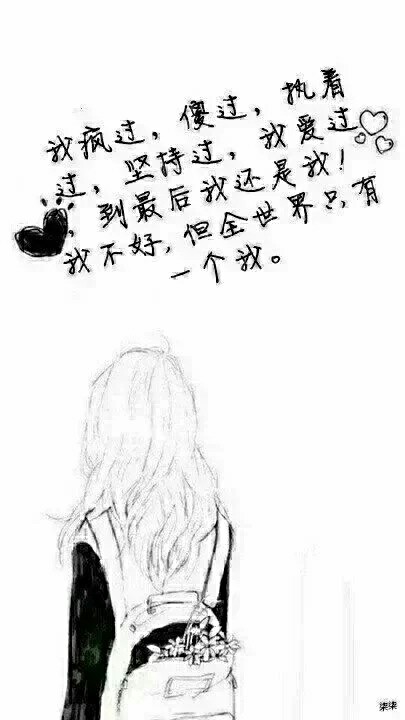 我疯过，傻过，执着
过，坚持过，我爱过
，到最后我还是我！
我不好，但全世界只有
一个我。
柒柒